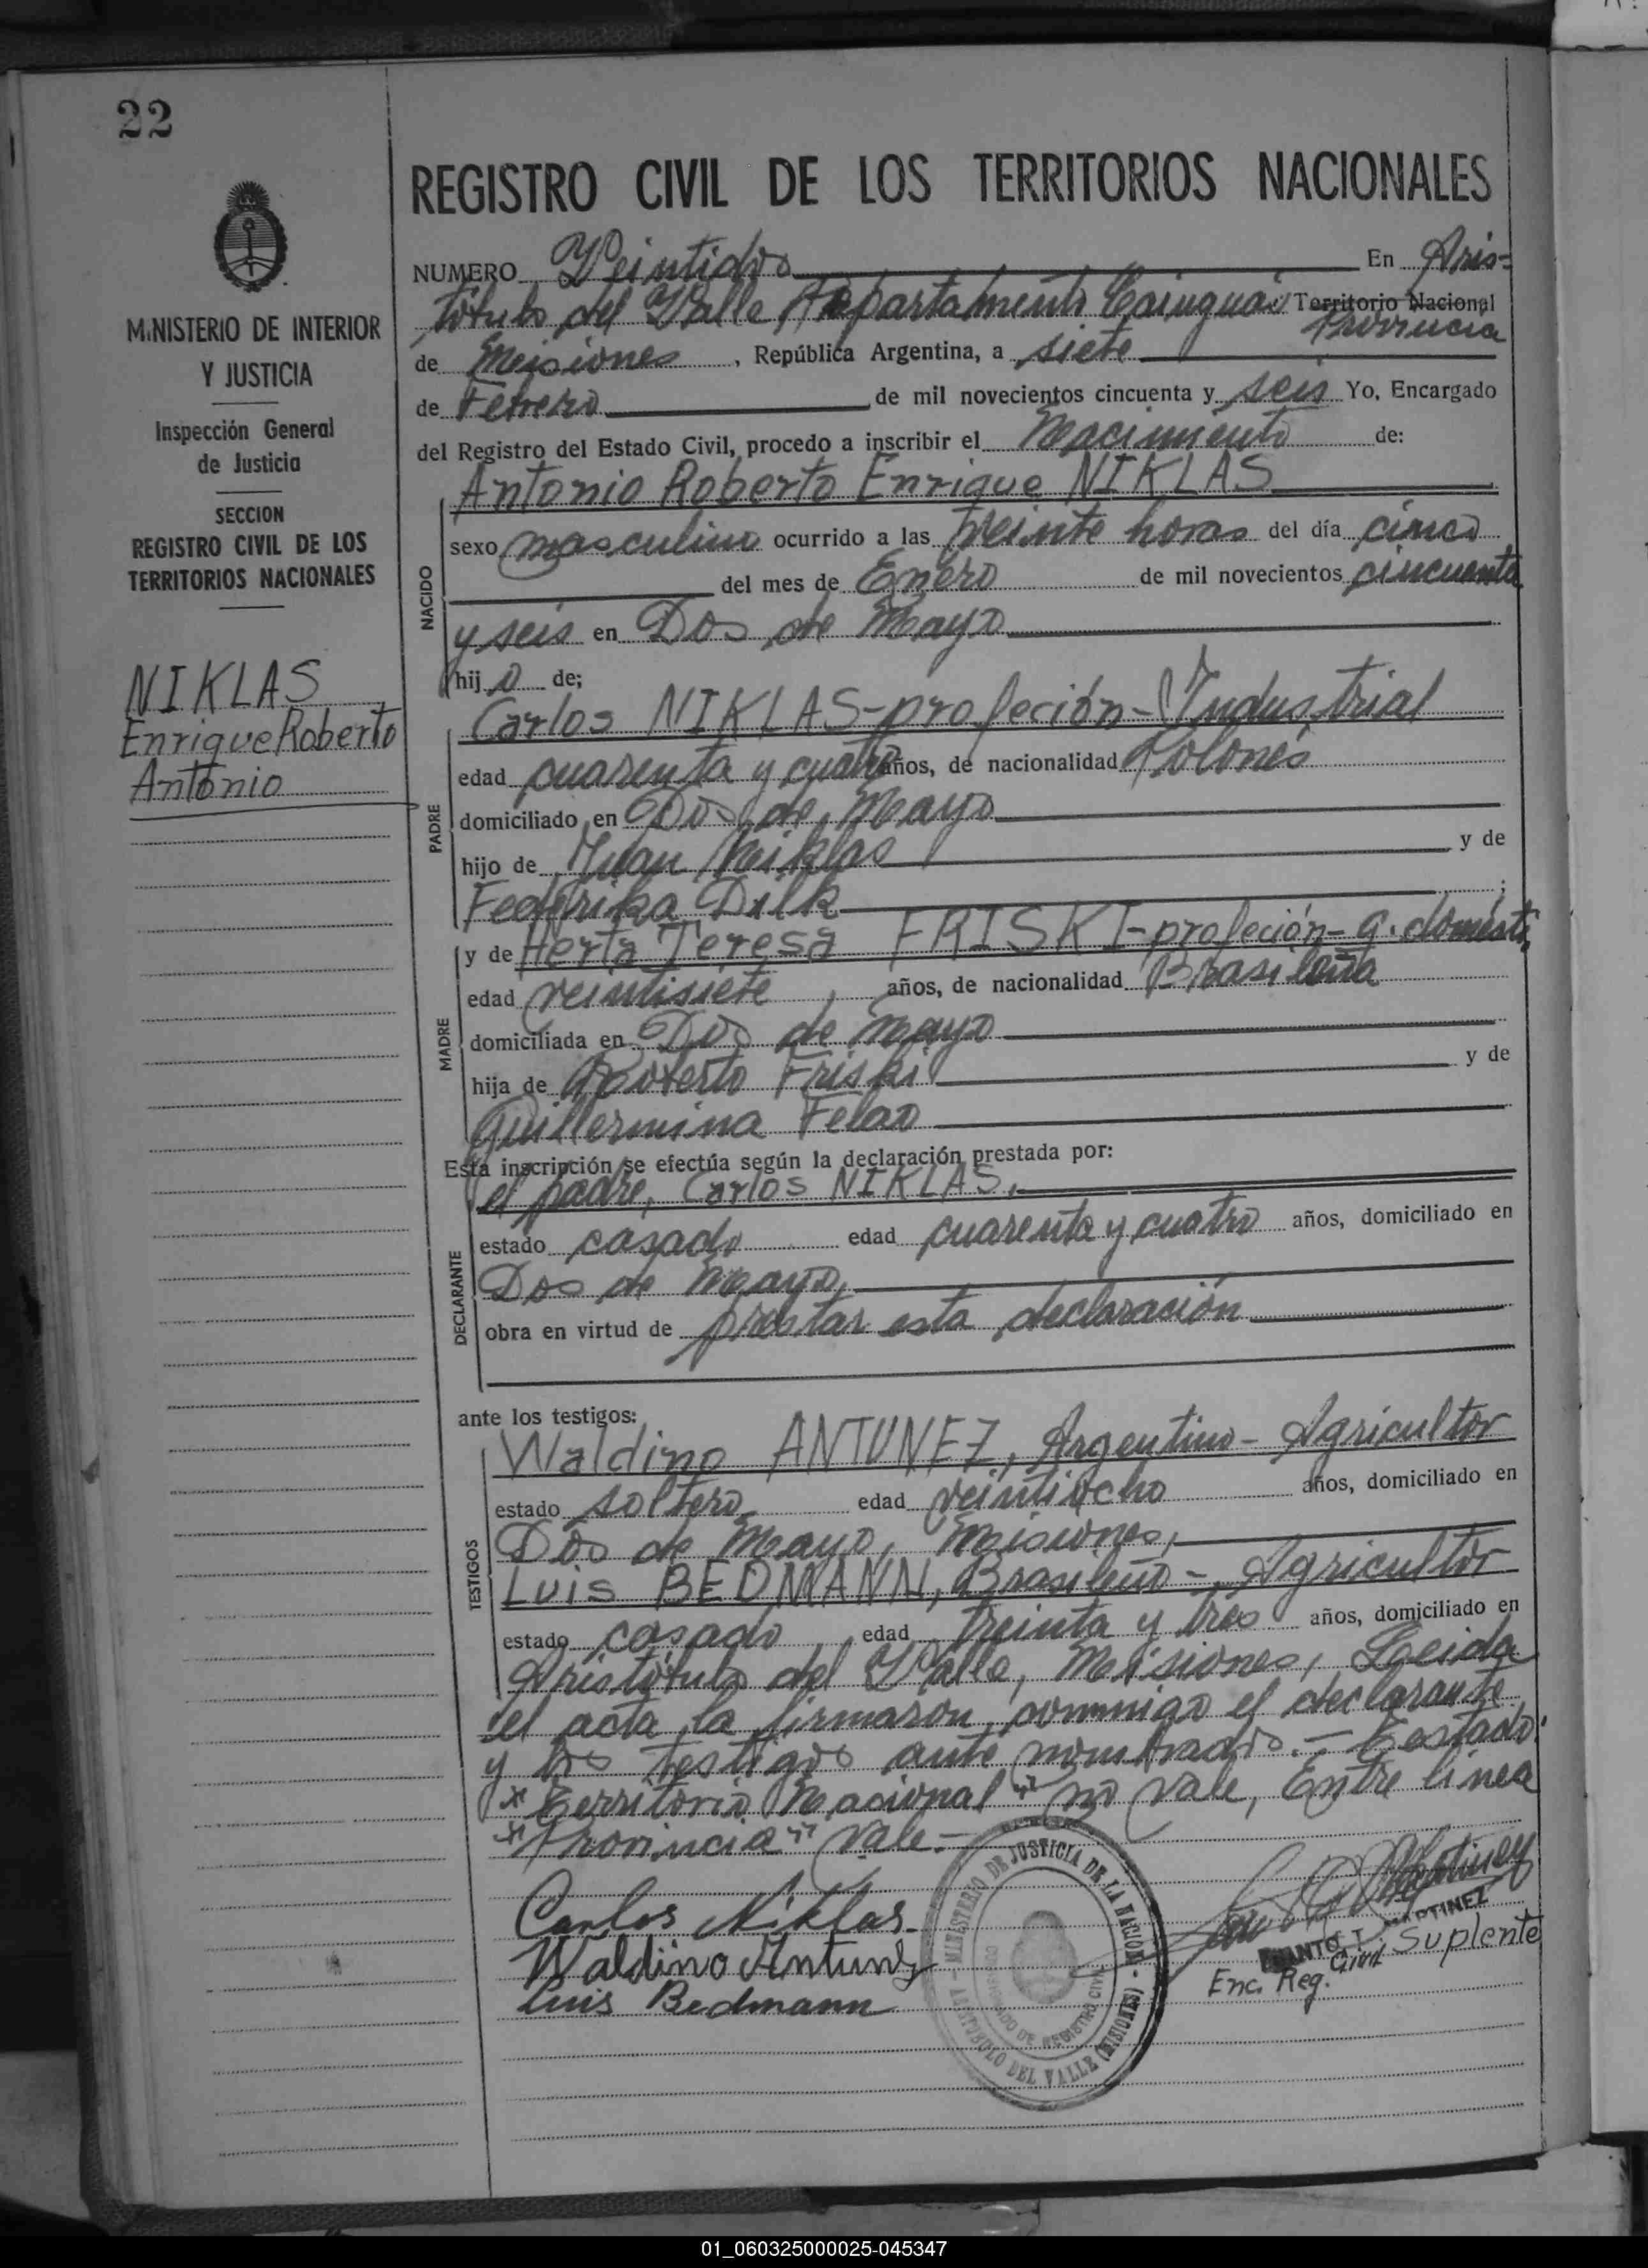 22
REGISTRO CIVIL DE LOS TERRITORIOS NACIONALES
NUMERO Veintidos En Aris=
tóbulo del Valle, Departamento Cainguás Territorio Nacional
Provincia
de Misiones, República Argentina, a siete
de Febrero de mil novecientos cincuenta y seis Yo, Encargado
del Registro del Estado Civil, procedo a inscribir el Nacimiento de:
Antonio Roberto Enrique NIKLAS
NACIDO
sexo masculino ocurrido a las veinte horas del día cinco
del mes de Enero de mil novecientos cincuenta
y seis en Dos de Mayo
hijo de;
PADRE
Carlos NIKLAS-profeción-Industrial
edad cuarenta y cuatro años, de nacionalidad Polonés
domiciliado en Dos de Mayo
hijo de Juan Niklas y de
Federika Dilk;
MADRE
y de Herta Teresa FRISKI-profeción-q. domésti.
edad veintisiete, años, de nacionalidad Brasileña
domiciliada en Dos de Mayo
hija de Roberto Friski y de
Guillermina Felao
Esta inscripción se efectúa según la declaración prestada por:
DECLARANTE
el padre, Carlos NIKLAS,
estado casado edad cuarenta y cuatro años, domiciliado en
Dos de Mayo,
obra en virtud de prestar esta declaración
ante los testigos:
TESTIGOS
Waldino ANTUNEZ, Argentino- Agricultor
estado soltero edad veintiocho años, domiciliado en
Dos de Mayo, Misiones,
Luis BEDMANN, Brasileño-, Agricultor
estado casado, edad treinta y tres años, domiciliado en
Aristóbulo del Valle, Misiones, Leida
el acta la firmaron conmigo el declarante
y los testigos ante nombrados.- Testado:
"Territorio Nacional" no vale, Entre linea
"Provincia" vale.-
Carlos Niklas
Waldino Antunez
Luis Bedmann
MINISTERIO DE JUSTICIA DE LA NACION - ARISTOBULO DEL VALLE (MISIONES)
DE REGISTRO CIVIL
T. MARTINEZ
Enc. Reg. Civil Suplente
MINISTERIO DE INTERIOR
Y JUSTICIA
Inspección General
de Justicia
SECCION
REGISTRO CIVIL DE LOS
TERRITORIOS NACIONALES
NIKLAS
Enrique Roberto
Antonio
01_060325000025-045347